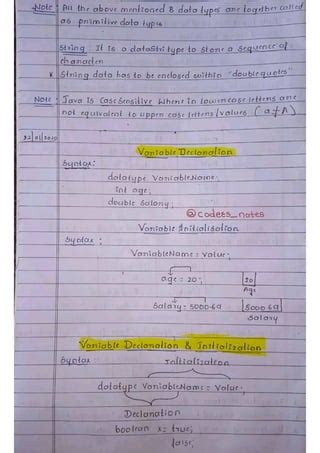 Note : All the above mentioned 8 data types are together called
as primitive data types
String : It is a datatype to Store a Sequence of
character
* String data has to be enclosed within "double quotes"
Note : Java is Case Sensitive Where in lowercase letters are
not equivalent to upper case letters/values. ( a ≠ A )
Variable Declaration
Syntax:
datatype VariableName;
int age;
double Salary;
@codees_notes
Variable Initialisation
Syntax :
VariableName = Value;
age = 20; 20
Age
Salary = 5000.69 5000.69
Salary
Variable Declaration & Initialization
Syntax : Initialization
datatype VariableName = Value;
Declaration
boolean x = true;
false;